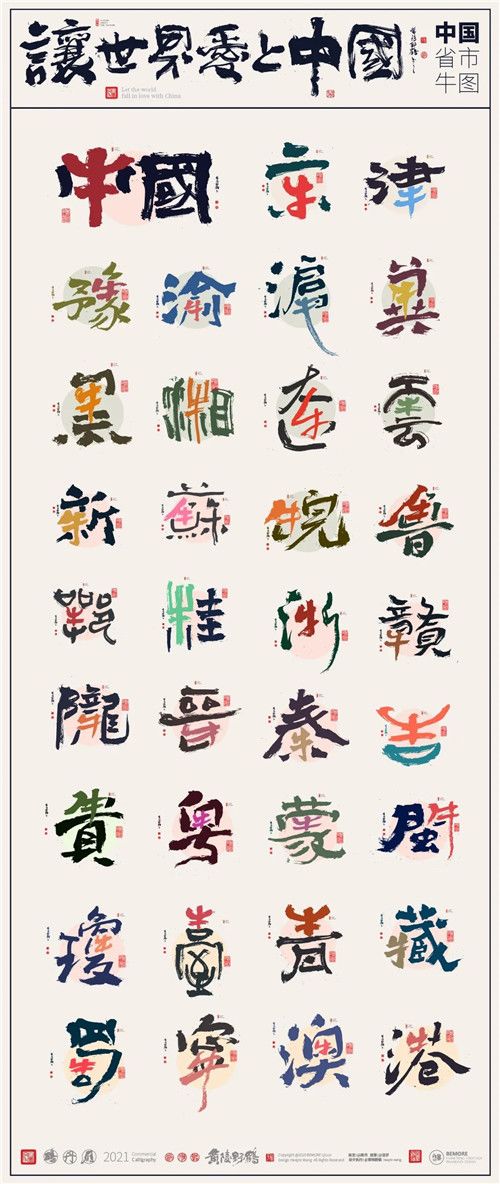 讓世界愛上中國
Let the world
fall in love with China
中国
省市
牛图
中國 京 津
豫 渝 滬 冀
黑 湘 遼 雲
新 蘇 皖 魯
鄂 桂 浙 贛
隴 晉 秦 吉
貴 粵 蒙 閩
瓊 臺 青 藏
蜀 寧 澳 港
2021 Commercial
Calligraphy
黃陵野鶴
BEMORE